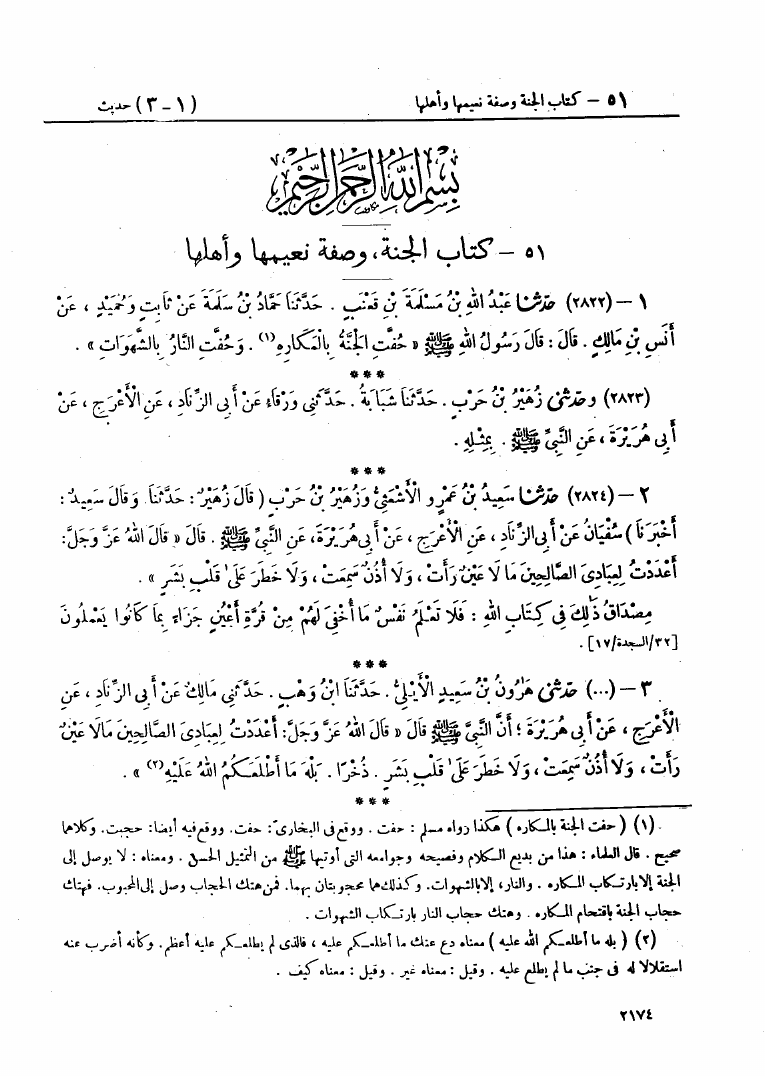 ٥١ – كتاب الجنة وصفة نعيمها وأهلها (١ – ٣) حديث
بِسْمِ اللهِ الرَّحْمٰنِ الرَّحِيمِ
٥١ – كتاب الجنة، وصفة نعيمها وأهلها
١ – (٢٨٢٢) حدّثنا عَبْدُ اللهِ بْنُ مَسْلَمَةَ بْنِ قَعْنَبٍ . حَدَّثَنَا حَمَّادُ بْنُ سَلَمَةَ عَنْ ثَابِتٍ وَحُمَيْدٍ ، عَنْ
أَنَسِ بْنِ مَالِكٍ . قَالَ : قَالَ رَسُولُ اللهِ ﷺ « حُفَّتِ الْجَنَّةُ بِالْمَكَارِهِ(١) . وَحُفَّتِ النَّارُ بِالشَّهَوَاتِ » .
***
(٢٨٢٣) وحدّثني زُهَيْرُ بْنُ حَرْبٍ . حَدَّثَنَا شَبَابَةُ . حَدَّثَنِي وَرْقَاءُ عَنْ أَبِي الزِّنَادِ ، عَنِ الْأَعْرَجِ ، عَنْ
أَبِي هُرَيْرَةَ ، عَنِ النَّبِيِّ ﷺ . بِمِثْلِهِ .
***
٢ – (٢٨٢٤) حدّثنا سَعِيدُ بْنُ عَمْرٍو الْأَشْعَثِيُّ وَزُهَيْرُ بْنُ حَرْبٍ ( قَالَ زُهَيْرٌ : حَدَّثَنَا . وَقَالَ سَعِيدٌ :
أَخْبَرَنَا ) سُفْيَانُ عَنْ أَبِي الزِّنَادِ ، عَنِ الْأَعْرَجِ ، عَنْ أَبِي هُرَيْرَةَ ، عَنِ النَّبِيِّ ﷺ . قَالَ « قَالَ اللهُ عَزَّ وَجَلَّ :
أَعْدَدْتُ لِعِبَادِيَ الصَّالِحِينَ مَا لَا عَيْنٌ رَأَتْ ، وَلَا أُذُنٌ سَمِعَتْ ، وَلَا خَطَرَ عَلَىٰ قَلْبِ بَشَرٍ » .
مِصْدَاقُ ذَٰلِكَ فِي كِتَابِ اللهِ : فَلَا تَعْلَمُ نَفْسٌ مَا أُخْفِيَ لَهُمْ مِنْ قُرَّةِ أَعْيُنٍ جَزَاءً بِمَا كَانُوا يَعْمَلُونَ
[٣٢/السجدة/١٧] .
***
٣ – (...) حدّثني هَارُونُ بْنُ سَعِيدٍ الْأَيْلِيُّ . حَدَّثَنَا ابْنُ وَهْبٍ . حَدَّثَنِي مَالِكٌ عَنْ أَبِي الزِّنَادِ ، عَنِ
الْأَعْرَجِ ، عَنْ أَبِي هُرَيْرَةَ ؛ أَنَّ النَّبِيَّ ﷺ قَالَ « قَالَ اللهُ عَزَّ وَجَلَّ : أَعْدَدْتُ لِعِبَادِيَ الصَّالِحِينَ مَا لَا عَيْنٌ
رَأَتْ ، وَلَا أُذُنٌ سَمِعَتْ ، وَلَا خَطَرَ عَلَىٰ قَلْبِ بَشَرٍ . ذُخْرًا . بَلْهَ مَا أَطْلَعَكُمُ اللهُ عَلَيْهِ(٢) » .
***
(١) ( حفت الجنة بالمكاره ) هكذا رواه مسلم : حفت . ووقع في البخاريّ : حفت. ووقع فيه أيضا: حجبت. وكلاهما
صحيح . قال العلماء : هذا من بديع الكلام وفصيحه وجوامعه التي أوتيها ﷺ من التمثيل الحسن . ومعناه : لا يوصل إلى
الجنة إلا بارتكاب المكاره . والنار، إلا بالشهوات. وكذلك هما محجوبتان بهما. فمن هتك الحجاب وصل إلى المحبوب. فهتك
حجاب الجنة باقتحام المكاره . وهتك حجاب النار بارتكاب الشهوات .
(٢) ( بله ما أطلعكم الله عليه ) معناه دع عنك ما أطلعكم عليه ، فالذي لم يطلعكم عليه أعظم. وكأنه أضرب عنه
استقلالا له في جنب ما لم يطلع عليه . وقيل : معناه غير . وقيل : معناه كيف .
٢١٧٤